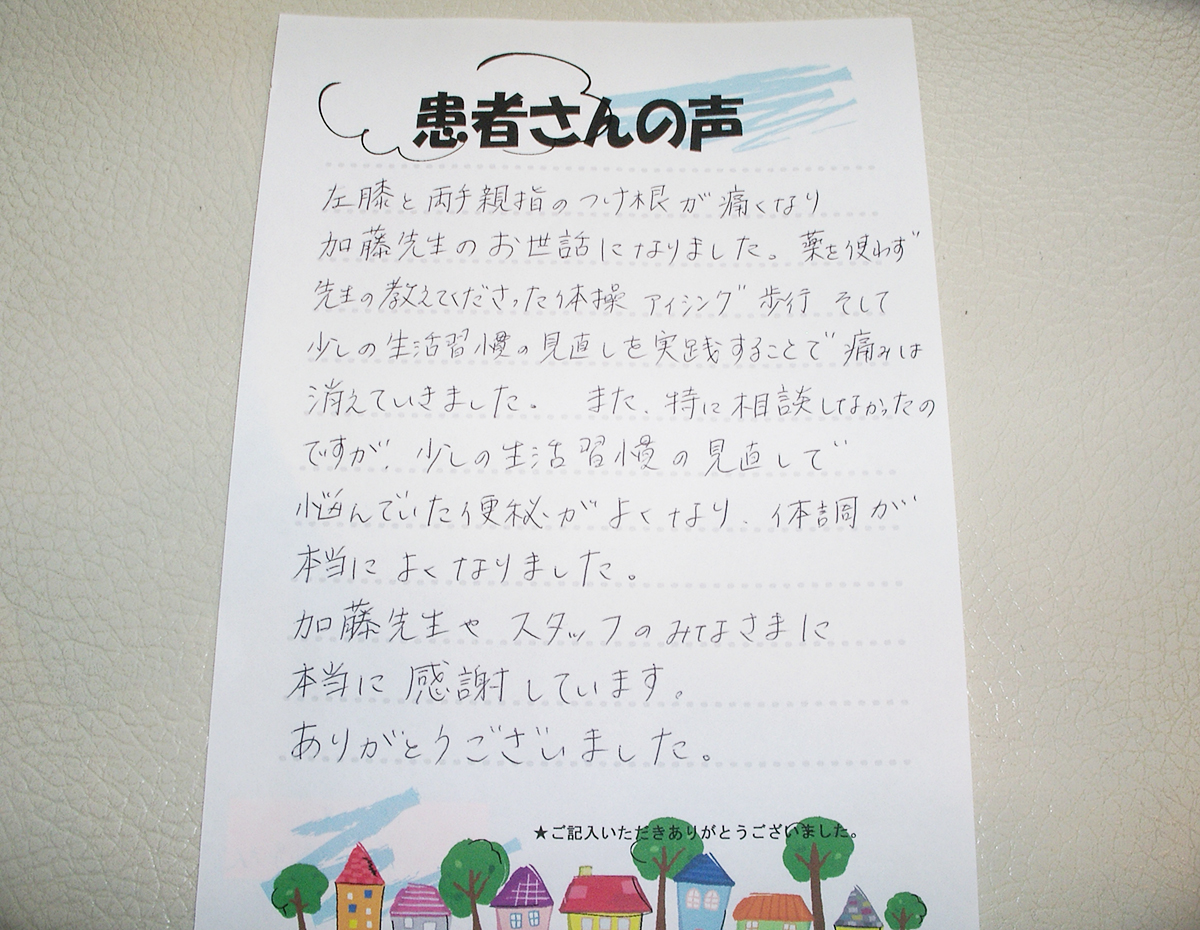 患者さんの声
左膝と両手親指のつけ根が痛くなり
加藤先生のお世話になりました。薬を使わず
先生の教えてくださった体操 アイシング 歩行 そして
少しの生活習慣の見直しを実践することで痛みは
消えていきました。 また、特に相談しなかったの
ですが、少しの生活習慣の見直しで
悩んでいた便秘がよくなり、体調が
本当によくなりました。
加藤先生や スタッフのみなさまに
本当に感謝しています。
ありがとうございました。
★ご記入いただきありがとうございました。